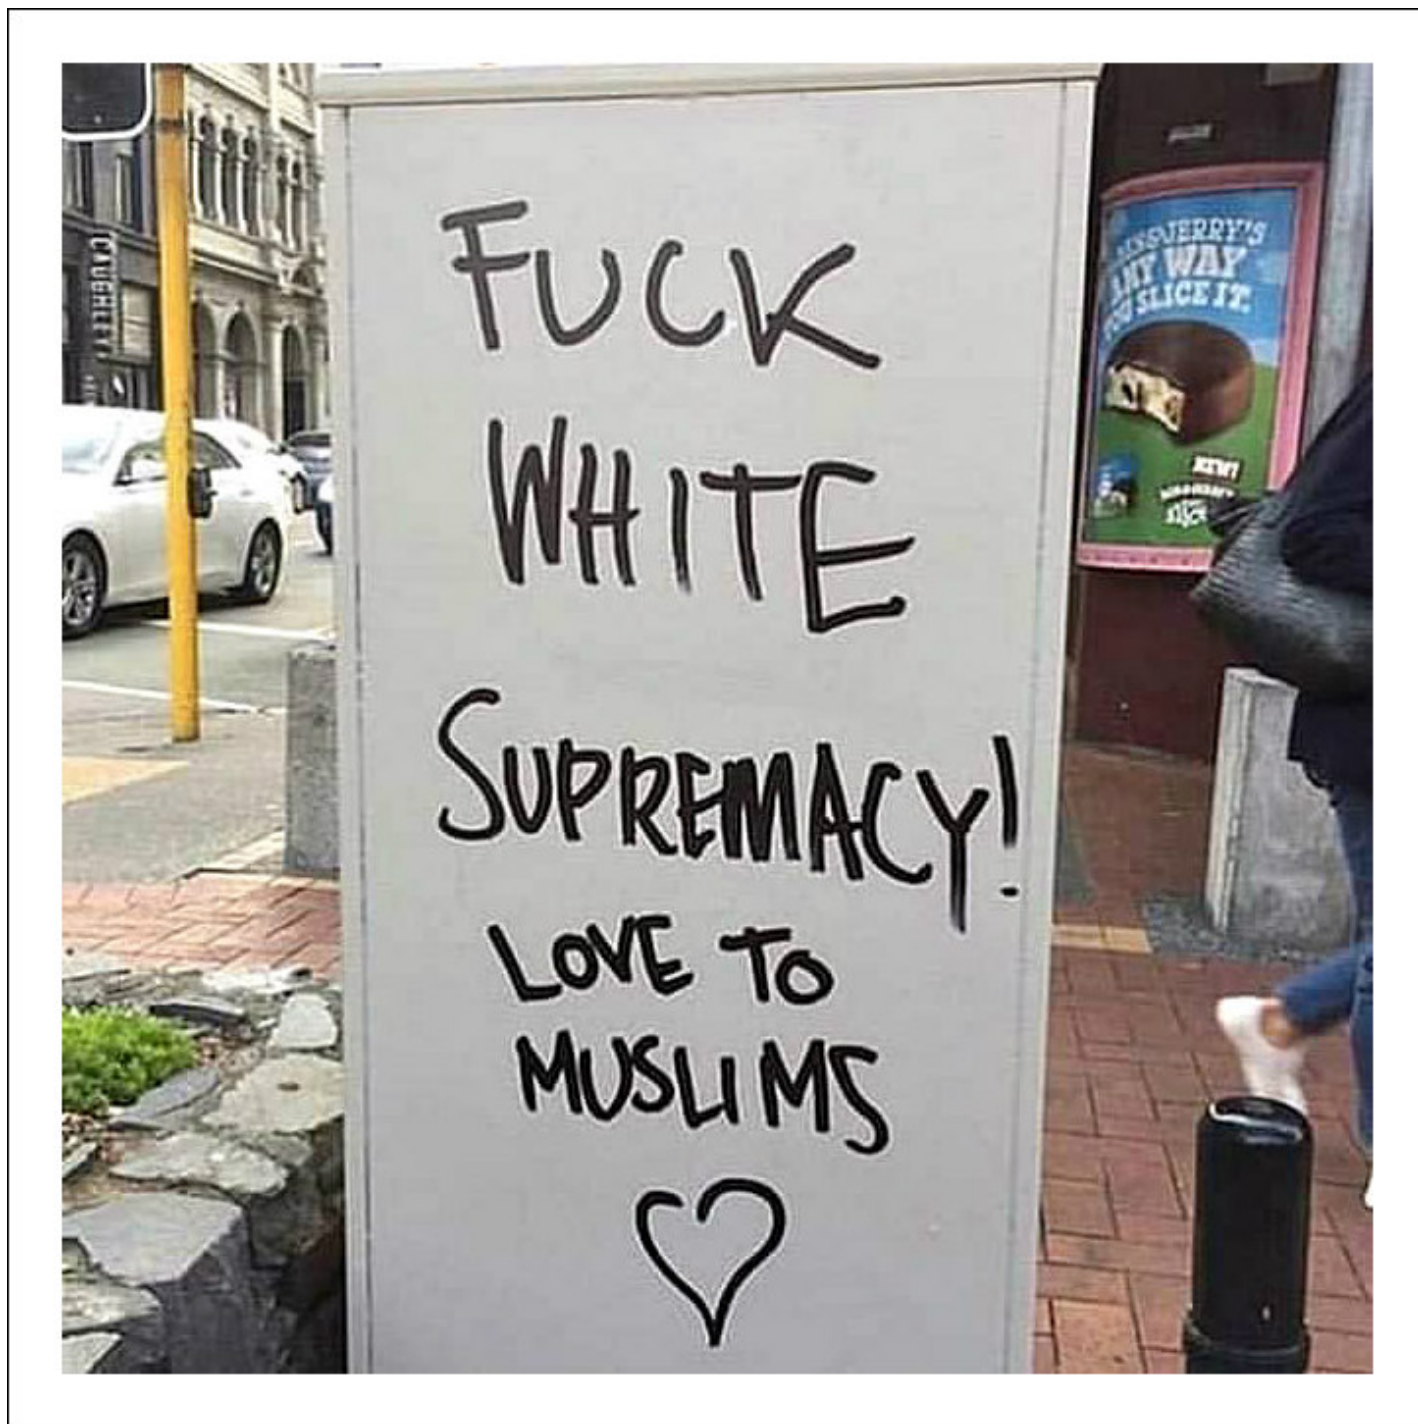 FUCK
WHITE
SUPREMACY!
LOVE TO
MUSLIMS
JERRY'S
ANY WAY
YOU SLICE IT.
NEW!